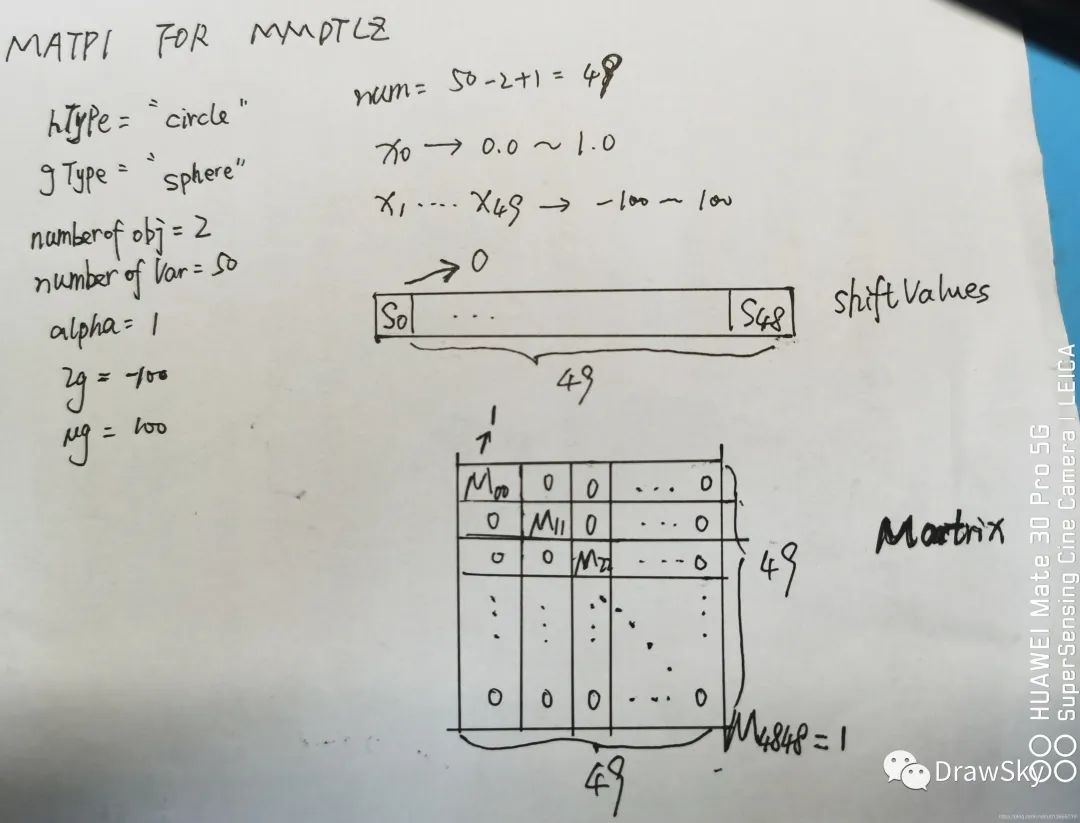 MATP1 FOR MMDTLZ
hType = "circle"
gType = "sphere"
number of obj = 2
number of Var = 50
alpha = 1
lg = -100
ug = 100
num = 50 - 2 + 1 = 49
x0 → 0.0 ~ 1.0
x1 .... x49 → -100 ~ 100
0
S0 ... S48
shiftValues
49
1
M00 0 0 ... 0
0 M11 0 ... 0
0 0 M22 ... 0
0 0 0 ... 0
49
Martrix
M4848 = 1
49
HUAWEI Mate 30 Pro 5G
SuperSensing Cine Camera | LEICA
DrawSky